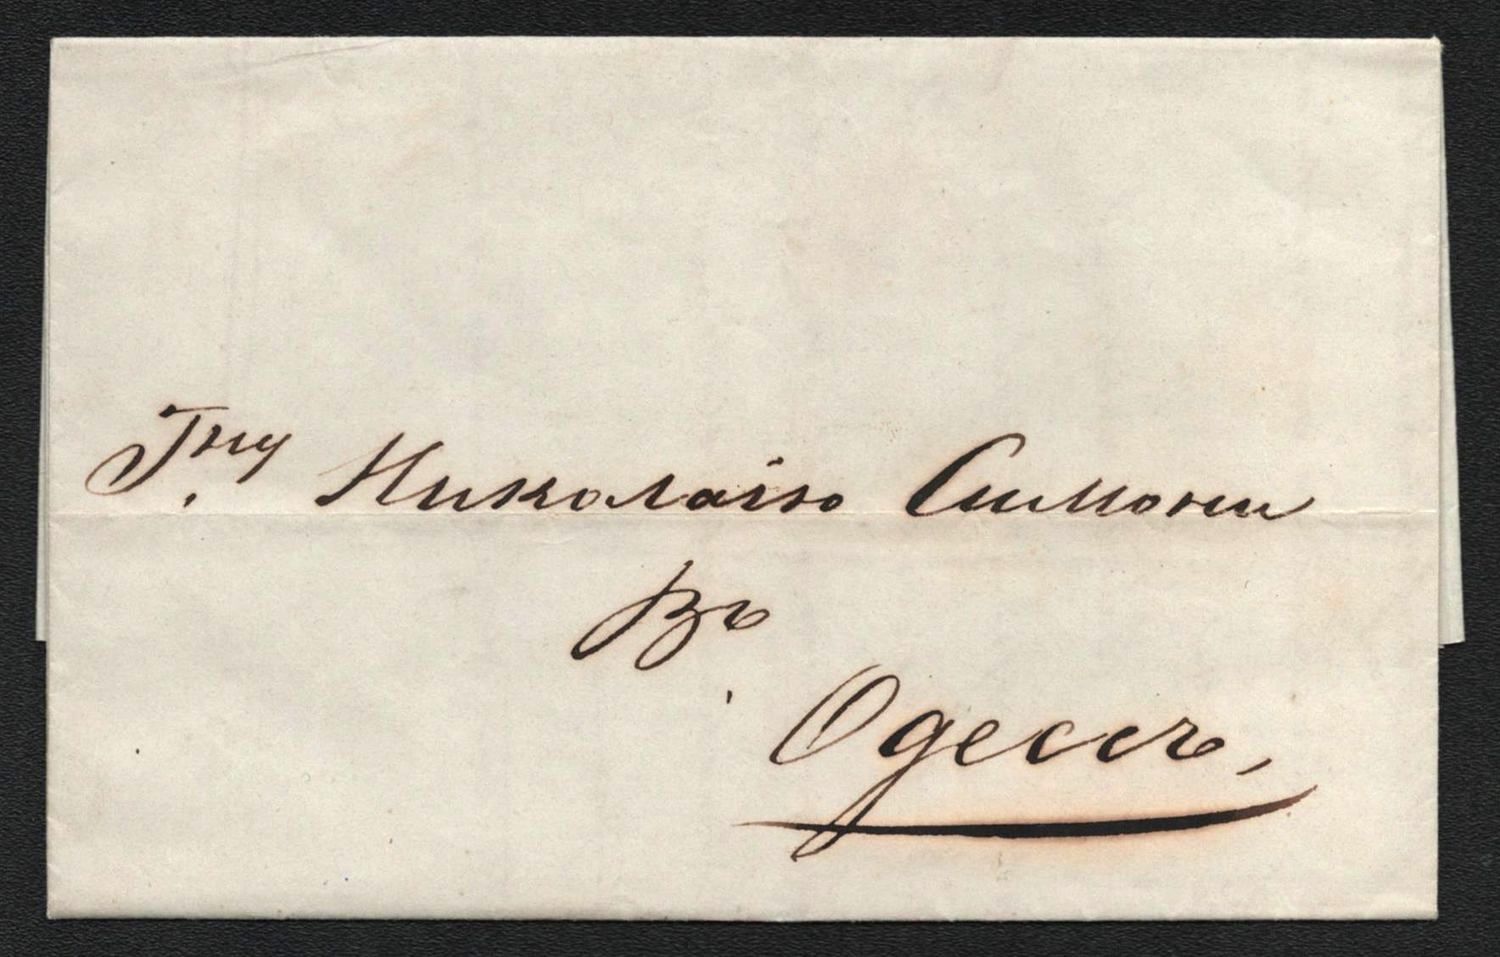 Гну Николаію Симони
Въ
Одессъ,